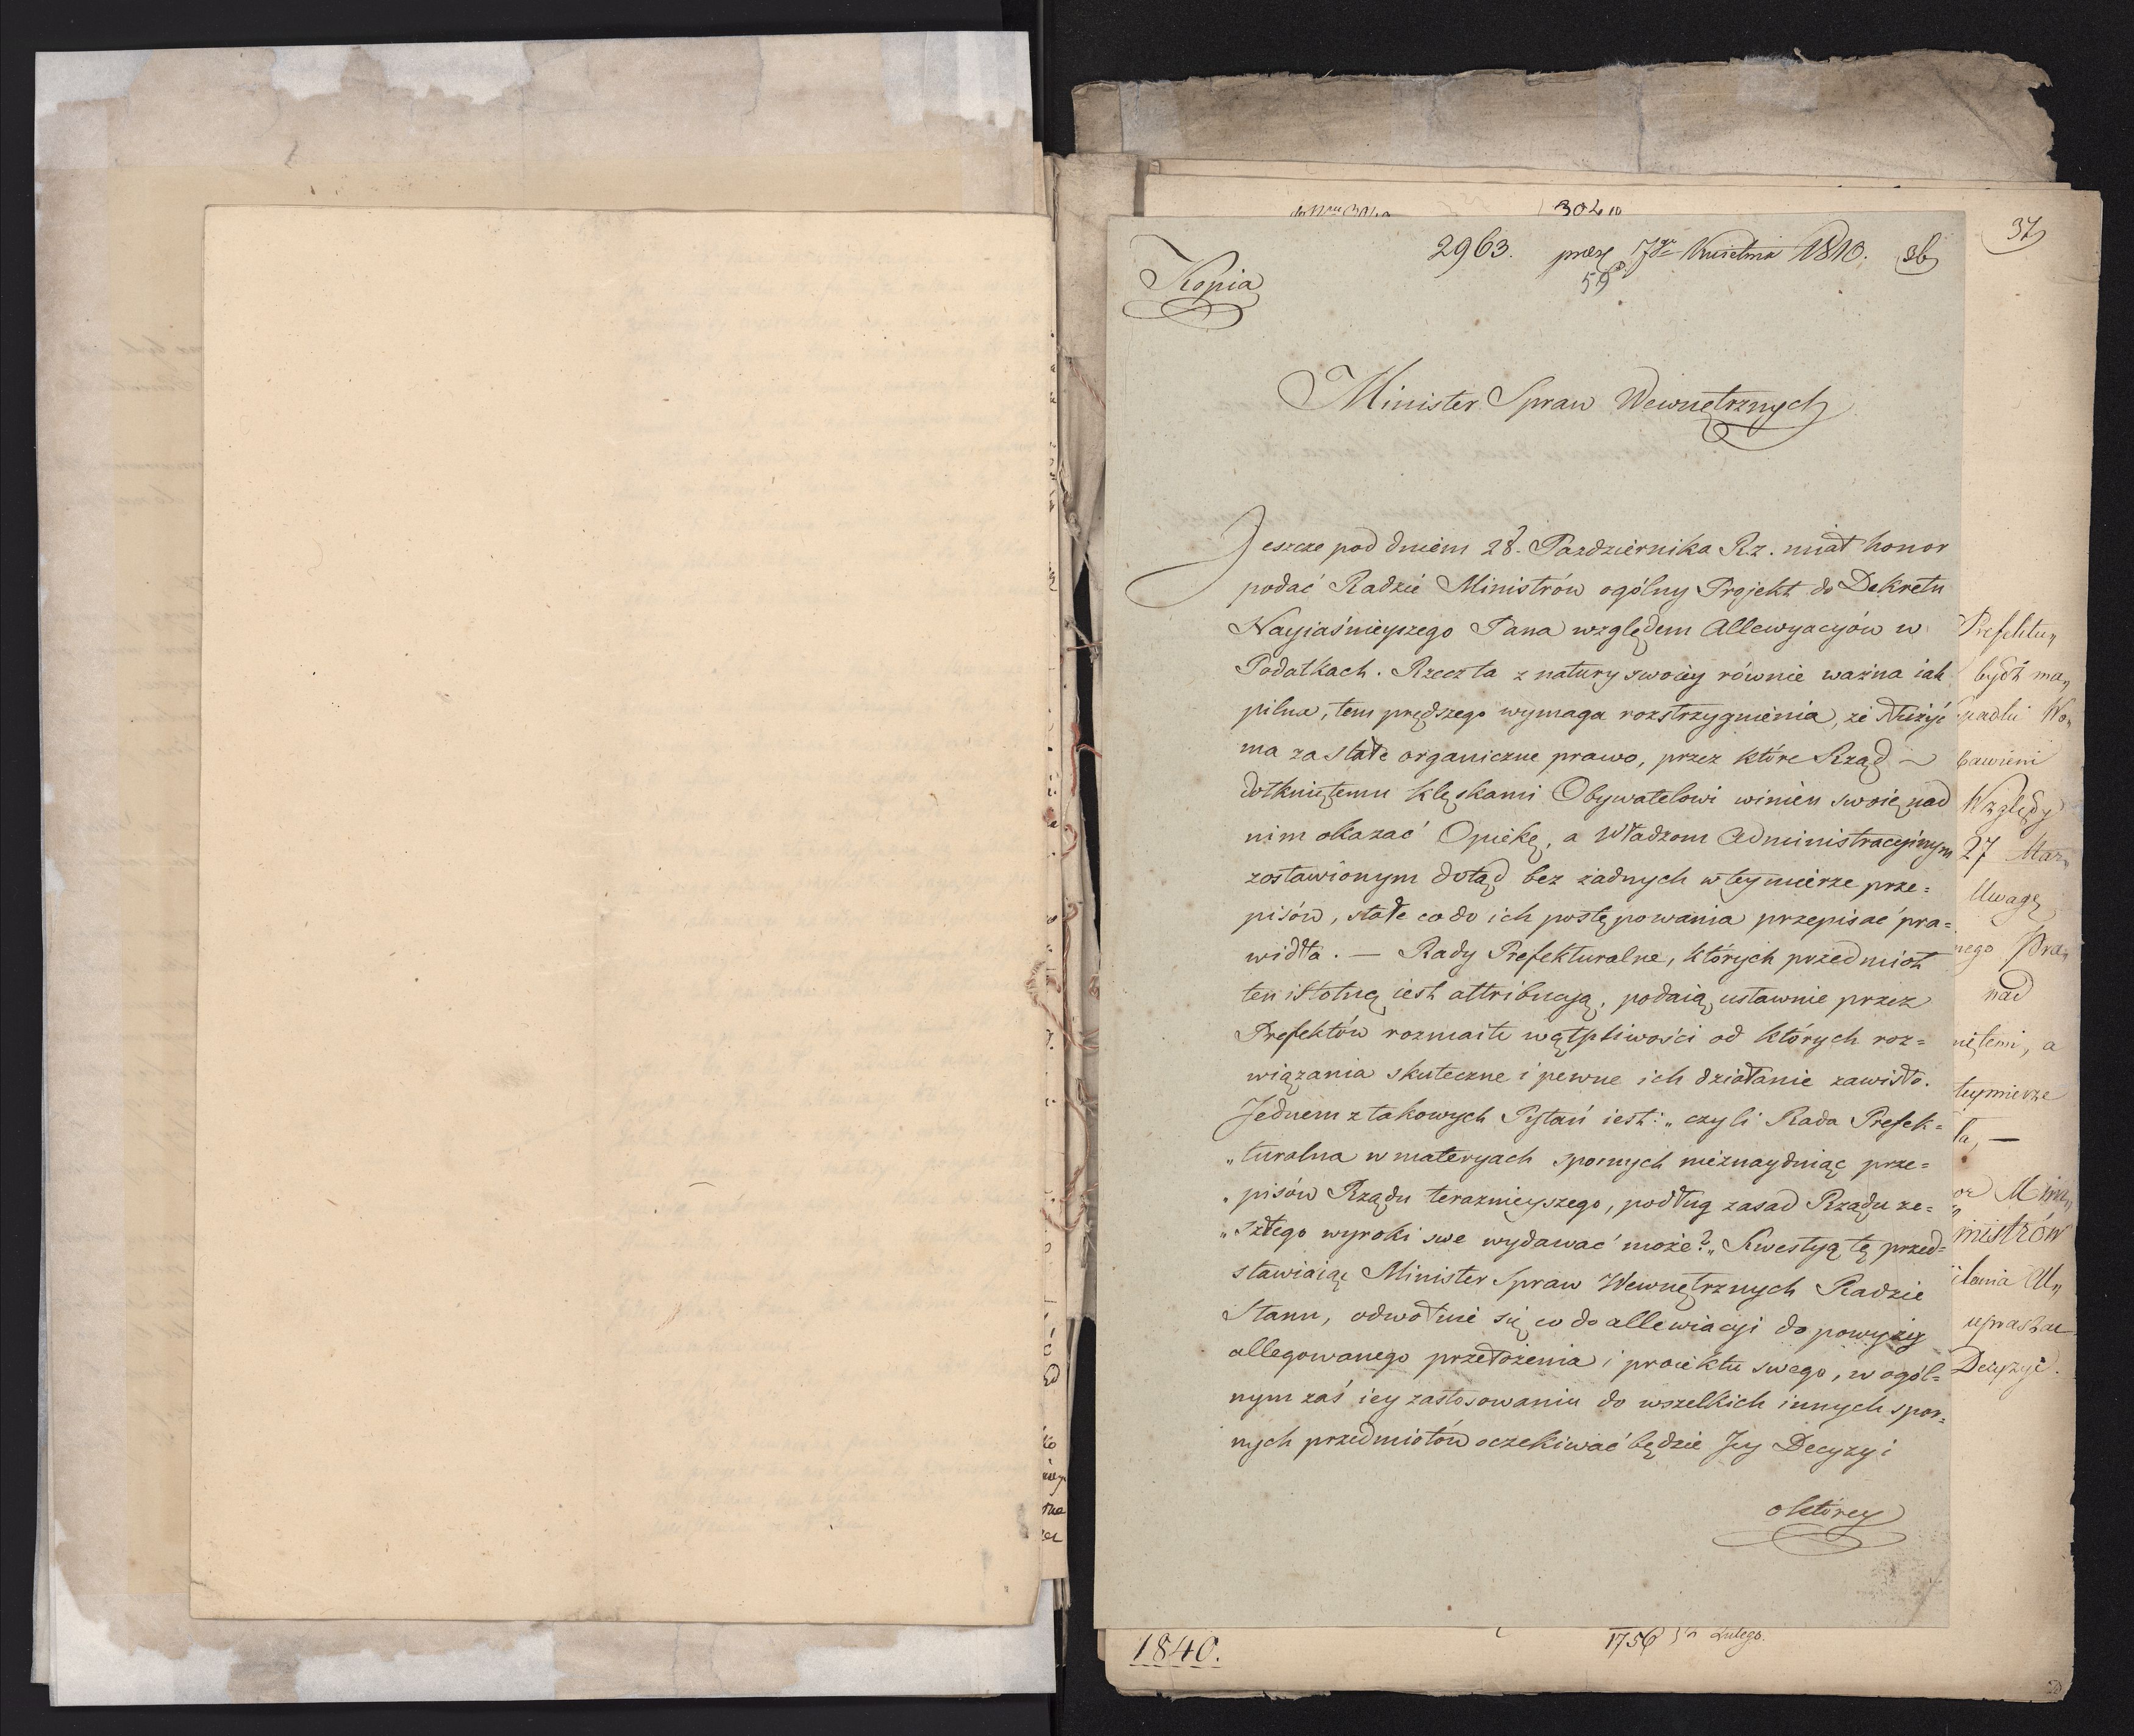 3020
37
2963. prez 7go Kwietnia 1810. 36
59
Kopia
Minister Spraw Wewnętrznych
Jeszcze pod dniem 28. Pazdziernika R.z. miał honor
podać Radzie Ministrów ogólny Projekt do Dekretu
Nayiaśnieyszego Pana względem Allewyacyów w
Podatkach. Rzecz ta z natury swoiey równie ważna iak
pilna, tem prędszego wymaga rozstrzygnienia, że służyć
ma za stałe organiczne prawo, przez które Rząd ~
dotkniętemu klęskami Obywatelowi winien swoię nad
nim okazać Opiekę, a Władzom Administracyinym
zostawionym dotąd bez żadnych w tey mierze prze=
pisów, stałe co do ich postępowania przepisać pra=
widła. — Rady Prefekturalne, których przedmiot
ten istotną iest attribucyą, podaią ustawnie przez
Prefektów rozmaite wątpliwości od których roz=
wiązania skuteczne i pewne ich działanie zawisło.
Jednem z takowych Pytań iest: „czyli Rada Prefek=
„turalna w materyach spornych nieznayduiąc prze=
„pisów Rządu teraznieyszego, podług zasad Rządu ze=
„szłego wyroki swe wydawać może?„ Kwestyą tę przed=
stawiaiąc Minister Spraw Wewnętrznych Radzie
Stanu, odwołuie się co do allewiacyi do powyżey
allegowanego przełożenia i proiektu swego, w ogól=
nym zaś iey zastosowaniu do wszelkich innych spor=
nych przedmiotów oczekiwać będzie Jey Decyzyi
o którey
Prefektu„
bydź ma„
padki Wo„
bawieni
Względy
27 Mar„
Uwagę
nego Pra„
nad
niętemi, a
teymierze
ła, —
or Min„
nistrów
ilania Al„
uprasza
Decyzyi.
1840.
1756 5n Lutego.